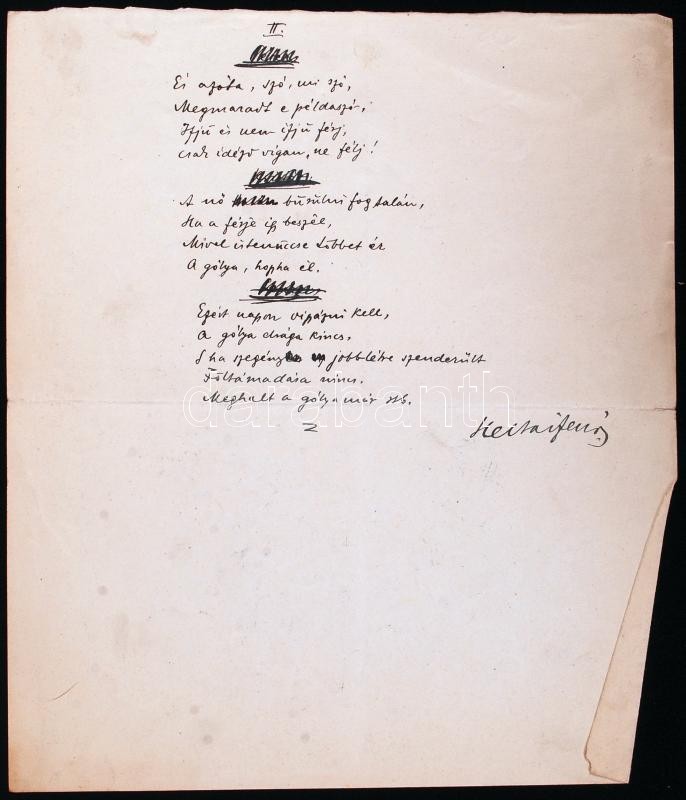 II.
És azóta, szó, mi szó,
Megmaradt e példaszó,
Ifjú és nem ifjú férj,
Csak idézd vigan, ne félj!
A nő búsulni fog talán,
Ha a férje igy beszél,
Mivel istenuccse többet ér
A gólya, hopha él.
Ezért napon vigázni kell,
A gólya drága kincs,
S ha szegény jobblétre szenderült
Föltámadása nincs.
Meghalt a gólya már stb.
Heltai Jenő
darabanth